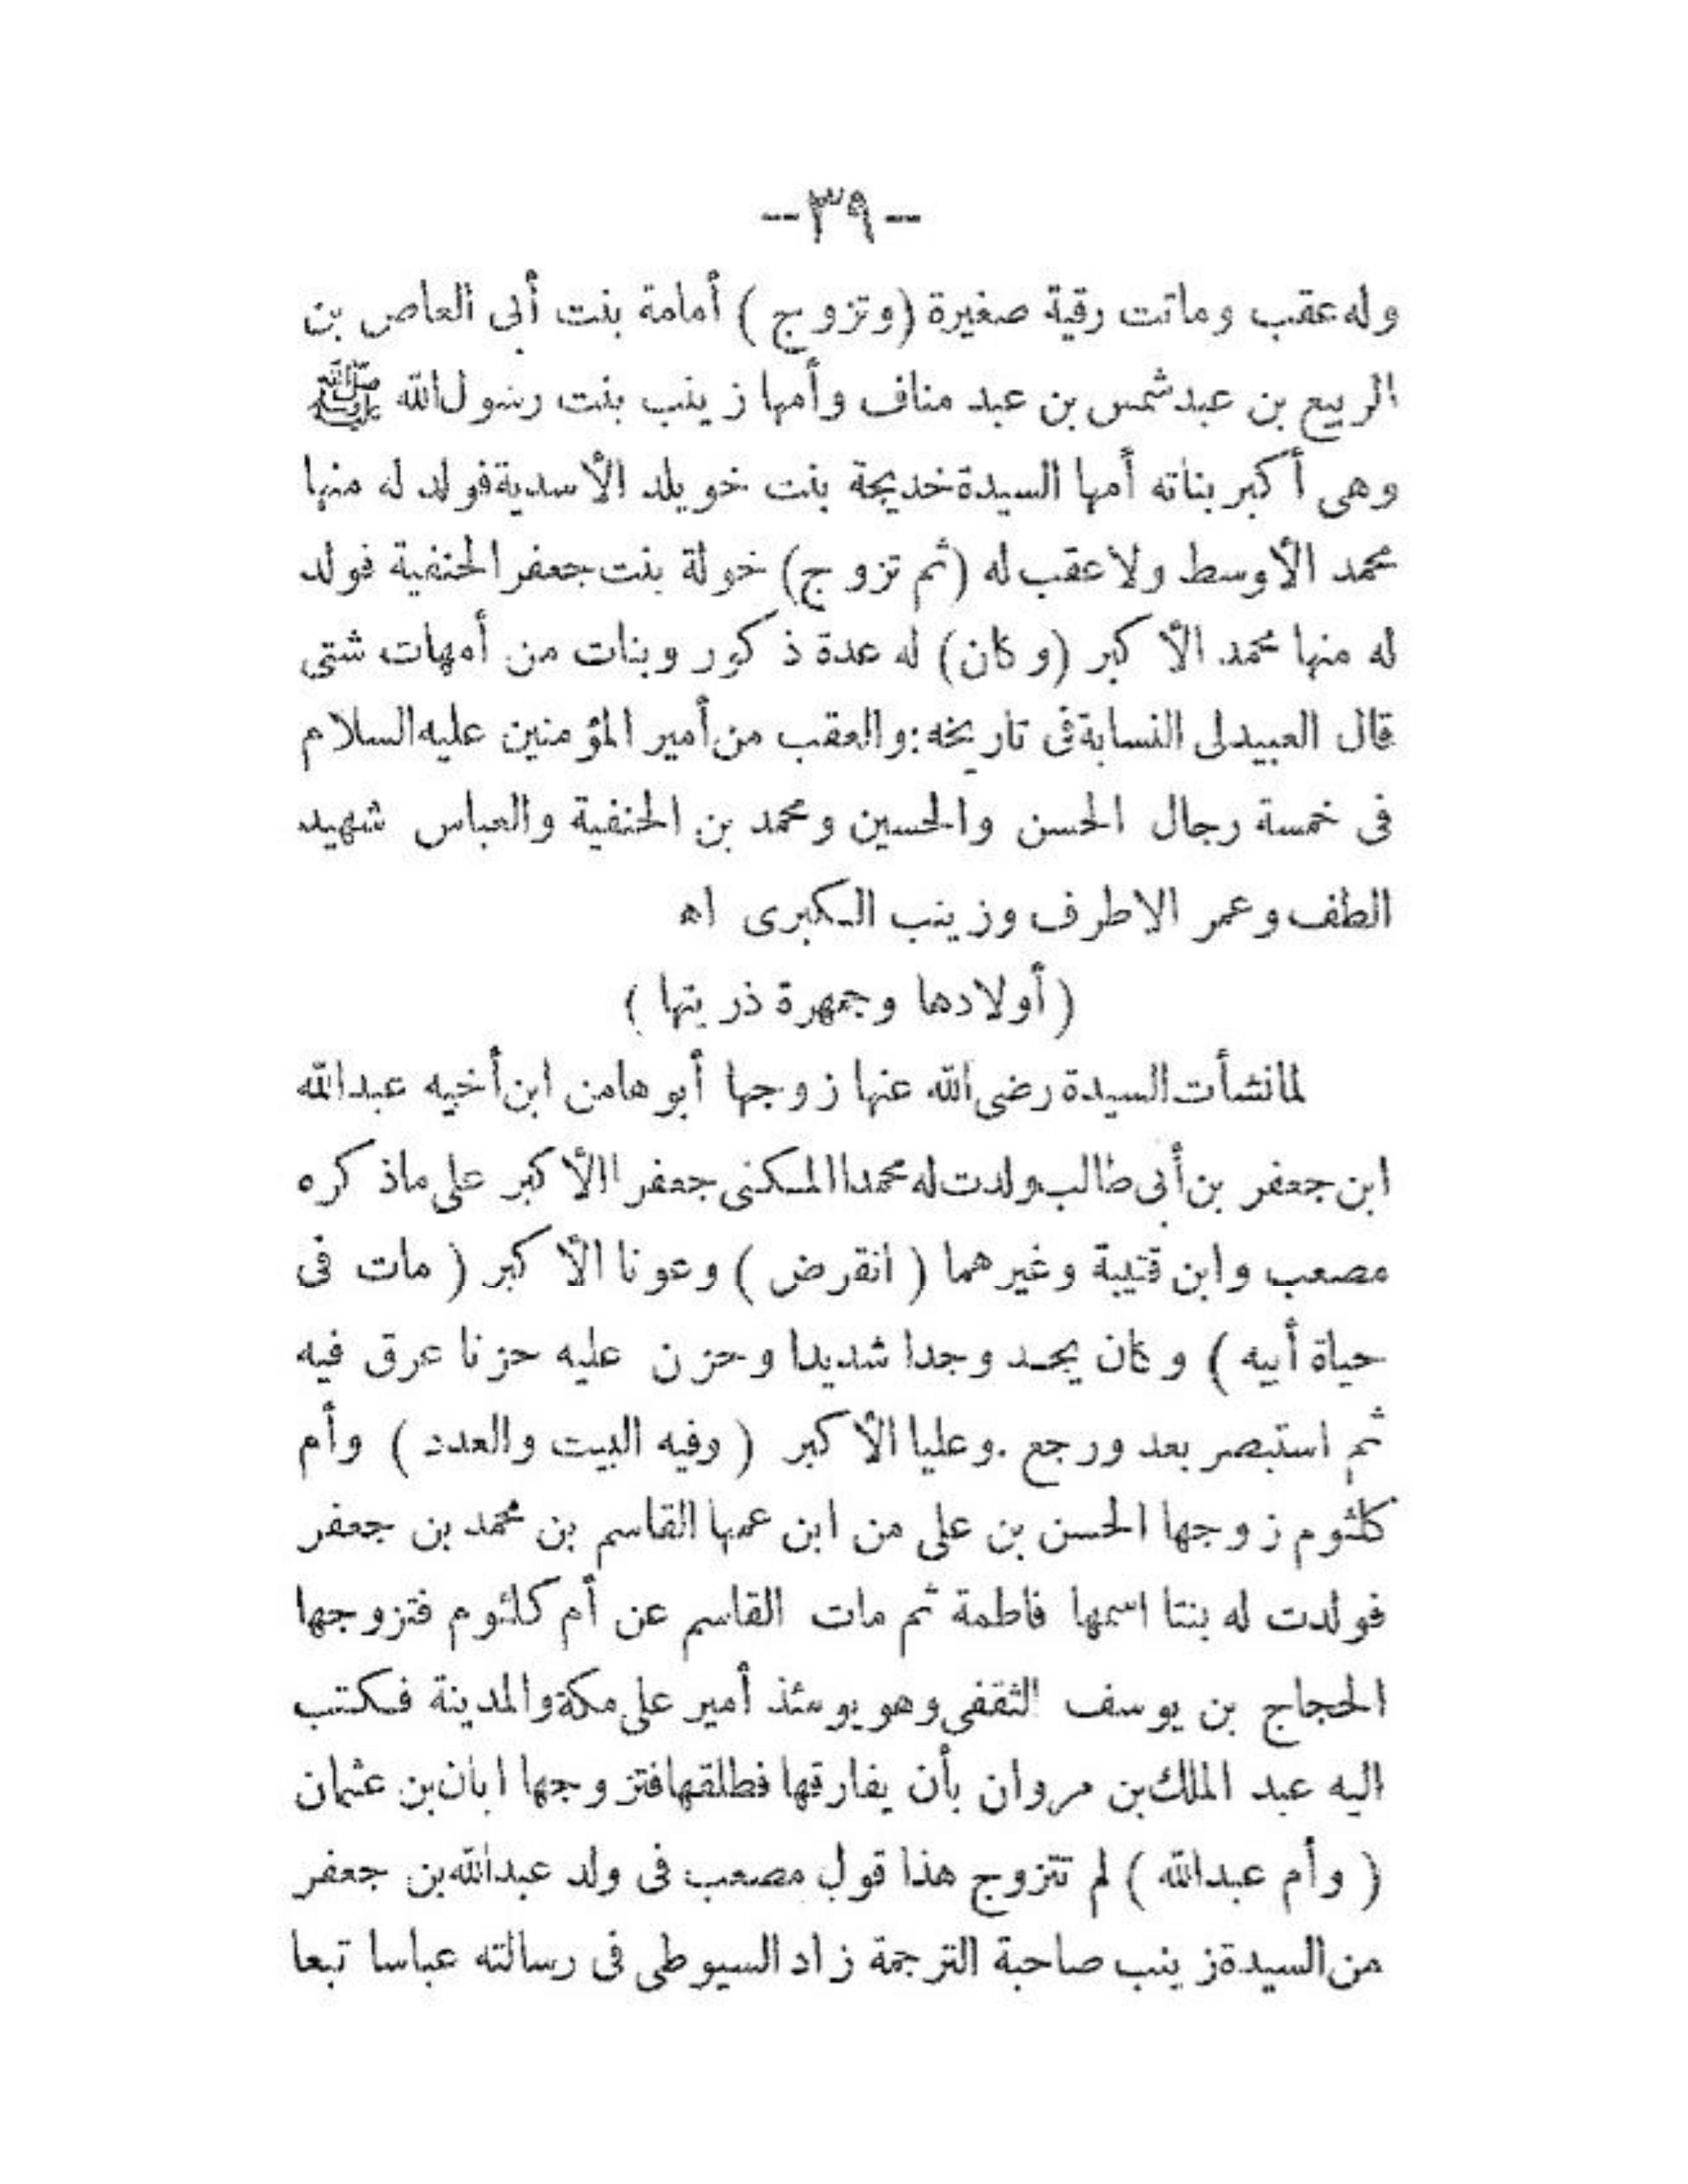 -٣٩-
وله عقب وماتت رقية صغيرة (وتزوج) أمامة بنت أبى العاص بن
الربيع بن عبد شمس بن عبد مناف وأمها زينب بنت رسول الله ﷺ
وهى أكبر بناته أمها السيدة خديجة بنت خويلد الأسدية فولد له منها
محمد الأوسط ولا عقب له (ثم تزوج) خولة بنت جعفر الحنفية فولد
له منها محمد الأكبر (وكان) له عدة ذكور وبنات من أمهات شتى
قال العبيدلى النسابة فى تاريخه: والعقب من أمير المؤمنين عليه السلام
فى خمسة رجال الحسن والحسين ومحمد بن الحنفية والعباس شهيد
الطف وعمر الاطرف وزينب الكبرى اه
(أولادها وجمهرة ذريتها)
لما نشأت السيدة رضى الله عنها زوجها أبوها من ابن أخيه عبد الله
ابن جعفر بن أبى طالب ولدت له محمدا المكنى جعفر االأكبر على ماذكره
مصعب وابن قتيبة وغيرهما (انقرض) وعونا الأكبر (مات فى
حياة أبيه) وكان يجد وجدا شديدا وحزن عليه حزنا عرق فيه
ثم استبصر بعد ورجع . وعليا الأكبر (وفيه البيت والعدد) وأم
كلثوم زوجها الحسن بن على من ابن عمها القاسم بن محمد بن جعفر
فولدت له بنتا اسمها فاطمة ثم مات القاسم عن أم كلثوم فتزوجها
الحجاج بن يوسف الثقفى وهو يومئذ أمير على مكة والمدينة فكتب
اليه عبد الملك بن مروان بأن يفارقها فطلقها فتزوجها ابان بن عثمان
(وأم عبد الله) لم تتزوج هذا قول مصعب فى ولد عبد الله بن جعفر
من السيدة زينب صاحبة الترجمة زاد السيوطى فى رسالته عباسا تبعا